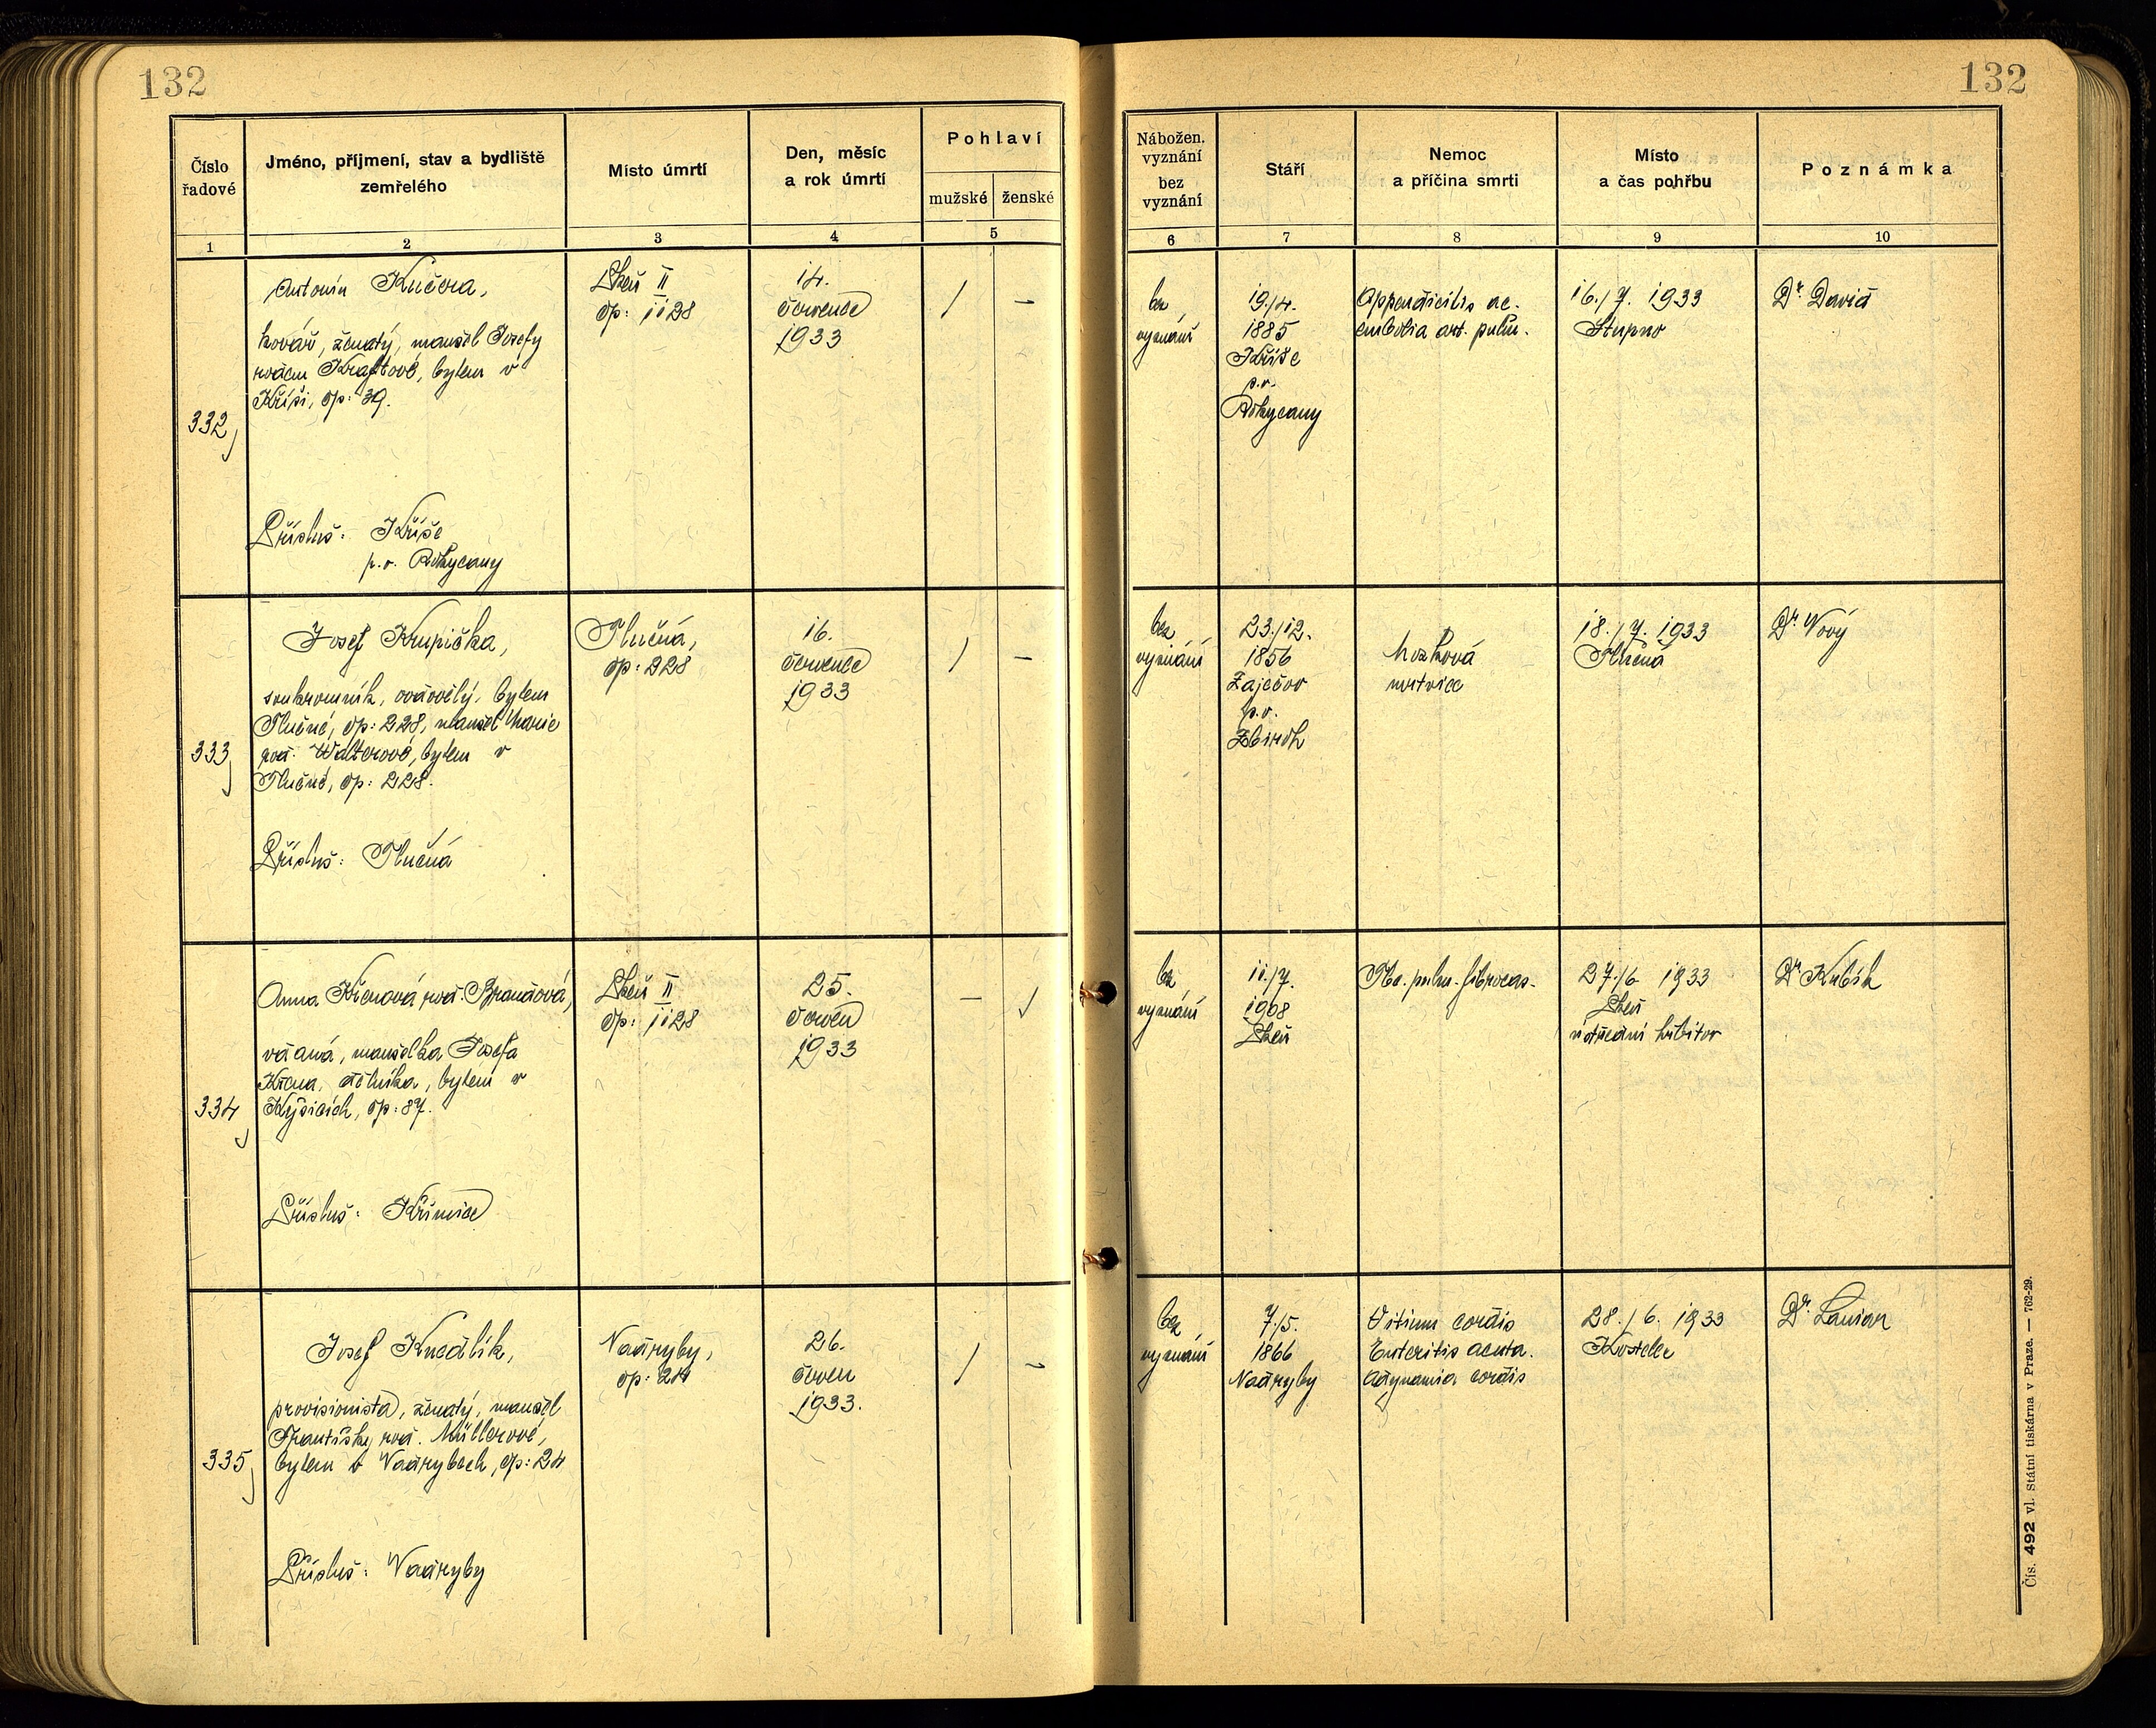 132
132
Číslo
řadové
Jméno, příjmení, stav a bydliště
zemřelého
Místo úmrtí
Den, měsíc
a rok úmrtí
Pohlaví
mužské
ženské
Nábožen.
vyznání
bez
vyznání
Stáří
Nemoc
a příčina smrti
Místo
a čas pohřbu
Poznámka
1
2
3
4
5
6
7
8
9
10
332
Antonín Kučera,
kovář, ženatý, manžel Josefy
rozen Kraftové, bytem v
Kříši, čp: 39.
Přísluš: Kříše
p.o. Rokycany
Plzeň II
čp: 1128
14.
července
1933
/
–
bez
vyznání
19./4.
1885
Kříše
p.o.
Rokycany
Appendicitis ac.
embolia art. pulm.
16./7. 1933
Stupno
Dr. David
333
Josef Krupička,
soukromník, ovdovělý, bytem
Tlučné, čp: 228, manžel Marie
roz. Walterové, bytem v
Tlučné, čp: 228.
Přísluš: Tlučná
Tlučná,
čp: 228
16.
července
1933
/
–
bez
vyznání
23./12.
1856
Zaječov
p.o.
Zbiroh
Mozková
mrtvice
18./7. 1933
Tlučná
Dr. Nový
334
Anna Křenová roz. Brandová,
vdaná, manželka Josefa
Křena, dělníka, bytem v
Kyšicích, čp: 87.
Přísluš: Křimice
Plzeň II
čp: 1128
25.
červen
1933
–
/
bez
vyznání
11./7.
1908
Plzeň
Tbc. pulm. fibrocas.
27./6 1933
Plzeň
ústřední hřbitov
Dr Kubík
335
Josef Knedlík,
provisionista, ženatý, manžel
Františky roz. Müllerové,
bytem v Nadrybech, čp: 24
Přísluš: Nadryby
Nadryby,
čp: 24
26.
červen
1933.
/
–
bez
vyznání
7./5.
1866
Nadryby
Vitium cordis
Enteritis acuta.
Adynamia cordis
28./6. 1933
Kostelec
Čís. 492 vl. Státní tiskárna v Praze. — 762-29.